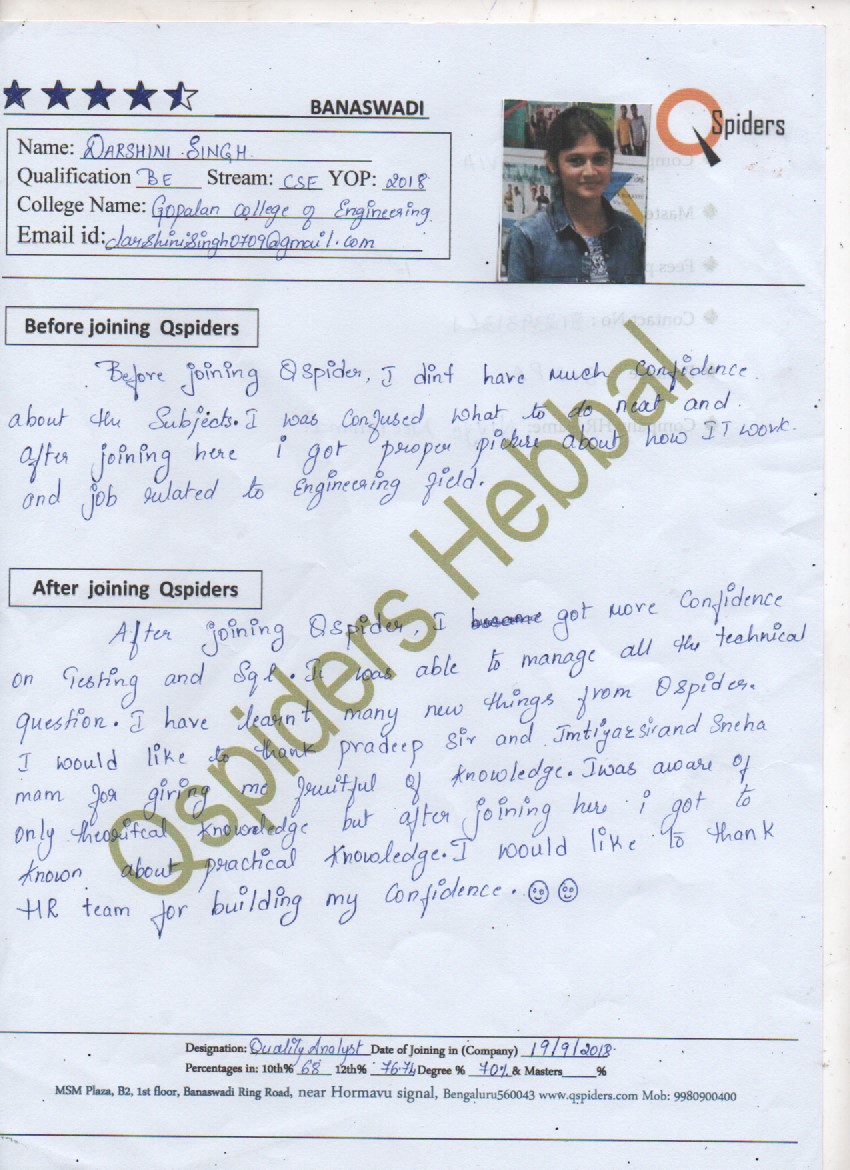 BANASWADI
Spiders
Name: DARSHINI SINGH
Qualification BE Stream: CSE YOP: 2018
College Name: Gopalan College of Engineering
Email id: darshinisingh0709@gmail.com
Before joining Qspiders
Before joining QSpider, I dint have much Confidence.
about the Subjects. I was confused what to do next and
after joining here i got proper picture about how IT work.
and job related to Engineering field.
Qspiders Hebbal
After joining Qspiders
After joining QSpider, I became got more Confidence
on Testing and Sql. It was able to manage all the technical
question. I have learnt many new things from QSpider.
I would like to thank pradeep Sir and Imtiyaz sir and Sneha
mam for giving me fruitful of knowledge. I was aware of
only theoritcal knowledge but after joining here i got to
known about practical knowledge. I would like to thank
HR team for building my Confidence.
Designation: Quality Analyst Date of Joining in (Company) 19/9/2018
Percentages in: 10th% 68 12th% 76.74 Degree % 70% & Masters %
MSM Plaza, B2, 1st floor, Banaswadi Ring Road, near Hormavu signal, Bengaluru560043 www.qspiders.com Mob: 9980900400